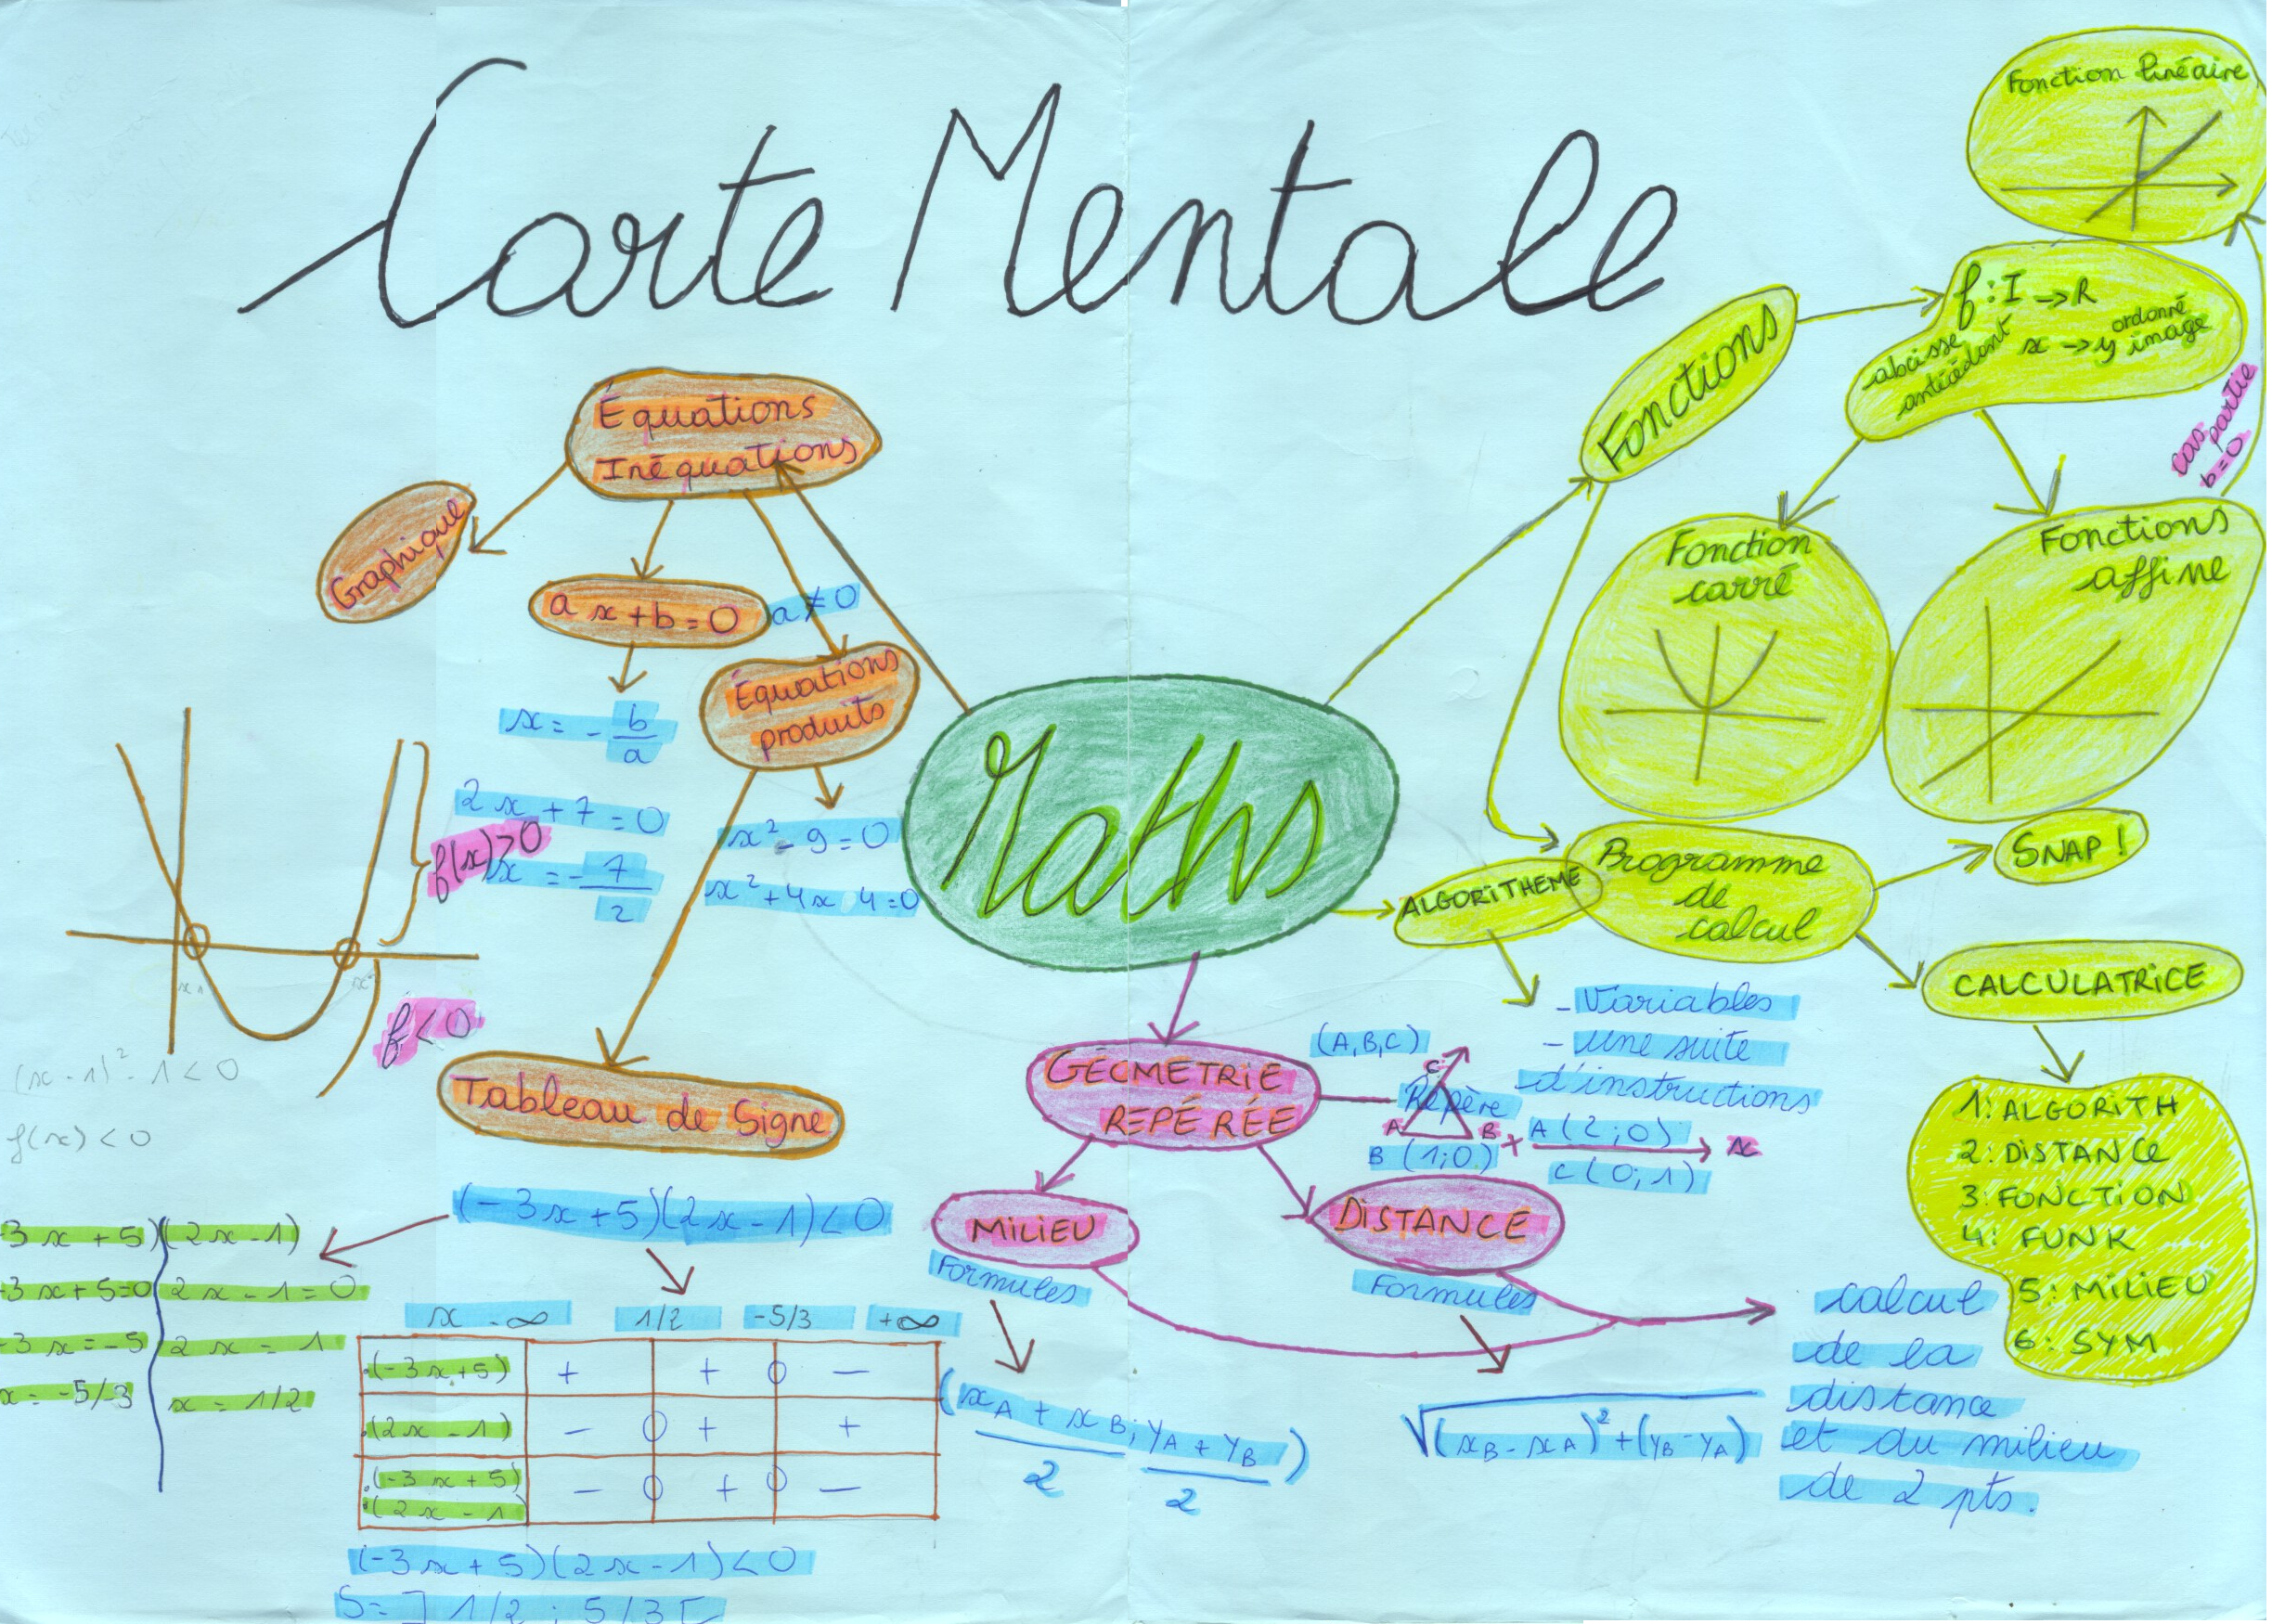 Carte Mentale
Maths
Équations
Inéquations
Graphique
a x + b = 0
a ≠ 0
x = - b/a
2x + 7 = 0
x = - 7/2
Équations
produits
x² - 9 = 0
x² + 4x 4 = 0
f(x) > 0
f < 0
(x - 1)² - 1 < 0
f(x) < 0
Tableau de Signe
(-3x + 5)(2x - 1) < 0
3x + 5)(2x - 1)
-3x + 5 = 0
2x - 1 = 0
-3x = -5
2x = 1
x = -5/3
x = 1/2
x -∞ 1/2 -5/3 +∞
(-3x + 5) + + 0 -
(2x - 1) - 0 + +
(-3x + 5) - 0 + 0 -
(2x - 1)
(-3x + 5)(2x - 1) < 0
S = ] 1/2 ; 5/3 [
Fonctions
f : I → R
abcisse
antécédent
x → y
ordonné
image
Fonction linéaire
cas
partie
b = 0
Fonction
carré
Fonctions
affine
ALGORITHEME
Programme
de
calcul
SNAP !
CALCULATRICE
1: ALGORITH
2: DISTANCE
3: FONCTION
4: FUNK
5: MILIEU
6: SYM
- Variables
- une suite
d'instructions
GÉOMETRIE
REPÉRÉE
(A, B, C)
Repère
C
A B
x
B (1; 0) +
A (2; 0)
C (0; 1)
MILIEU
Formules
(xA + xB / 2 ; yA + yB / 2)
DISTANCE
Formules
√(xB - xA)² + (yB - yA)
calcul
de la
distance
et du milieu
de 2 pts.